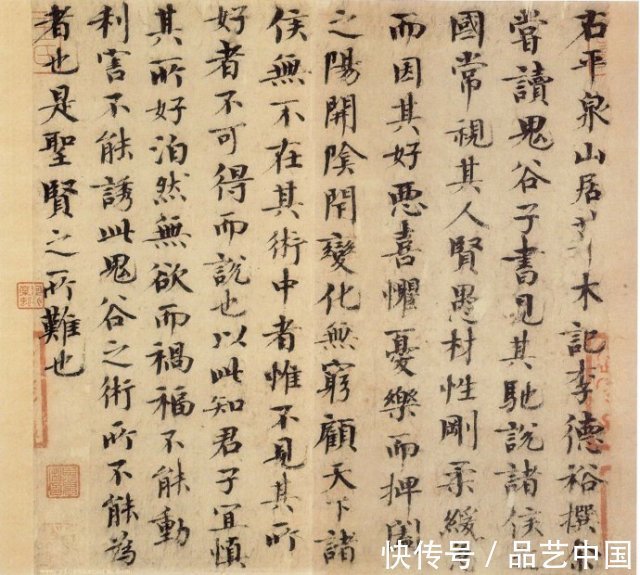 右平泉山居草木記李德裕撰余
嘗讀鬼谷子書見其馳說諸侯
國常視其人賢愚材性剛柔緩
而因其好惡喜懼憂樂而捭闔
之陽開陰閇變化無窮顧天下諸
侯無不在其術中者惟不見其所
好者不可得而說也以此知君子宜慎
其所好泊然無欲而禍福不能動
利害不能誘此鬼谷之術所不能為
者也是聖賢之所難也
快传号 / 品艺中国